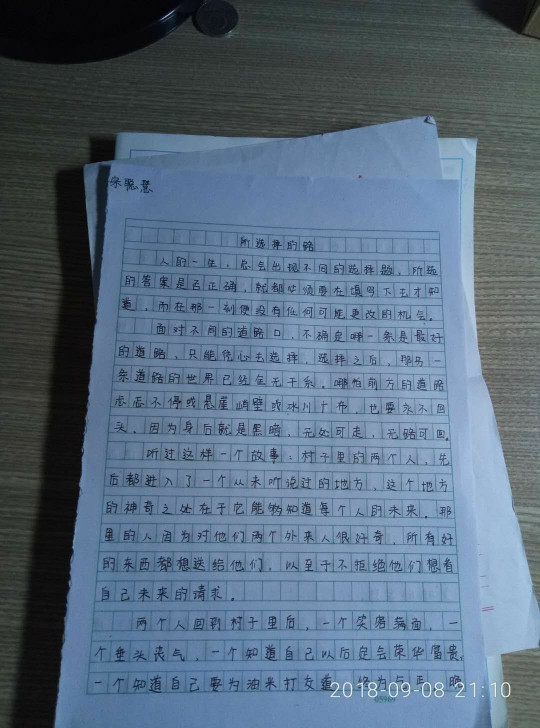 余聪慧
所选择的路
人的一生，总会出现不同的选择题，所选
的答案是否正确，就都必须要在填写下去才知
道，而在那一刻便没有任何可能更改的机会。
面对不同的道路口，不确定哪一条是最好
的道路，只能凭心去选择，选择之后，那另一
条道路的世界已经会无干系。哪怕前方的道路
忐忑不停或悬崖峭壁或冰川寸布，也要永不回
头，因为身后就是黑暗，无处可走，无路可回。
听过这样一个故事：村子里的两个人，先
后都进入了一个从未听说过的地方，这个地方
的神奇之处在于它能够知道每个人的未来。那
里的人因为对他们两个外来人很好奇，所有好
的东西都想送给他们，以至于不拒绝他们想看
自己未来的请求。
两个人回到村子里后，一个笑容满面，一
个垂头丧气，一个知道自己以后定会荣华富贵，
一个知道自己要为油米打交道，终为
2018-09-08 21:10